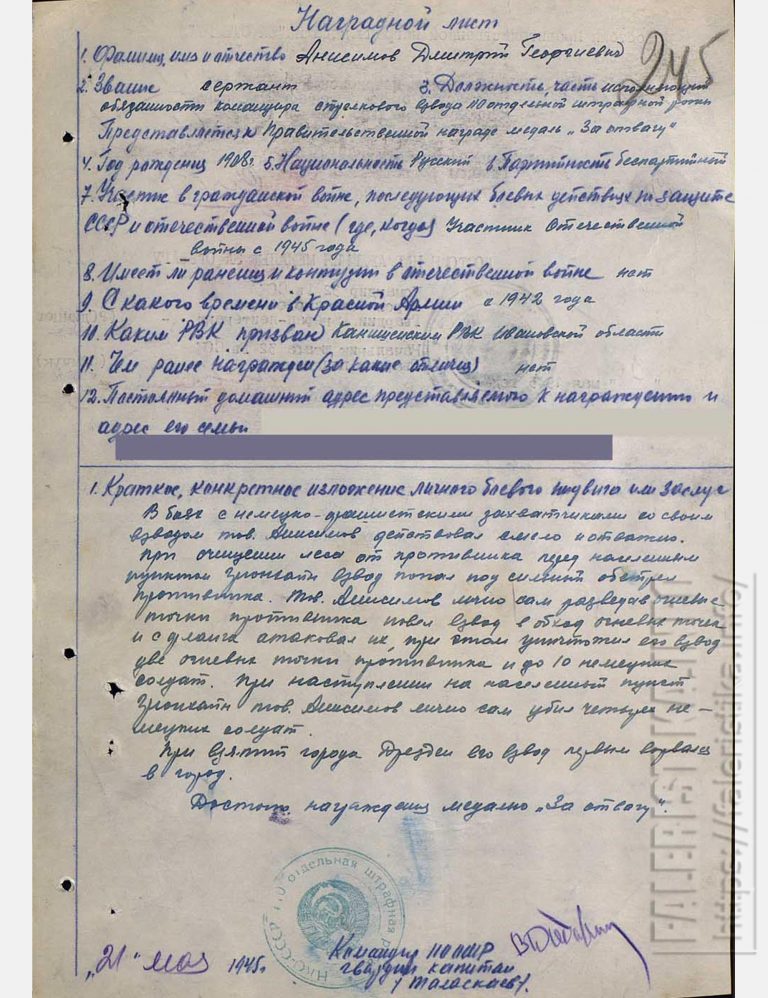 Наградной лист
245
1. Фамилия, имя и отчество Анисимов Дмитрий Георгиевич
2. Звание сержант 3. Должность, часть исполняющий
обязанности командира стрелкового взвода 110 отдельной штрафной роты
Представляется к Правительственной награде медаль „За отвагу"
4. Год рождения 1908г. 5. Национальность Русский 6. Партийность беспартийный
7. Участие в гражданской войне, последующих боевых действиях по защите
СССР и отечественной войне (где, когда) Участник Отечественной
войны с 1945 года
8. Имеет ли ранения и контузии в отечественной войне нет
9. С какого времени в Красной Армии с 1942 года
10. Каким РВК призван РВК Ивановской области
11. Чем ранее награжден (за какие отличия) нет
12. Постоянный домашний адрес представляемого к награждению и
адрес его семьи
1. Краткое, конкретное изложение личного боевого подвига или заслуг
В боях с немецко-фашистскими захватчиками со своим
взводом тов. Анисимов действовал смело и отважно.
При очищении леса от противника перед населенным
пунктом взвод попал под сильный обстрел
противника. Тов. Анисимов лично сам разведав огневые
точки противника повел взвод в обход огневых точек
и с фланга атаковал их, при этом уничтожил его взвод
две огневых точки противника и до 10 немецких
солдат. При наступлении на населенный пункт
тов. Анисимов лично сам убил четырех не-
мецких солдат.
При взятии города Дрезден его взвод первым ворвался
в город.
Достоин награждения медалью „За отвагу".
НКО-СССР 110 отдельная штрафная
Командир 110 ОШР
гвардии капитан
„21" мая 1945г.
FALERISTIKA.INFO
https://faleristika.info/